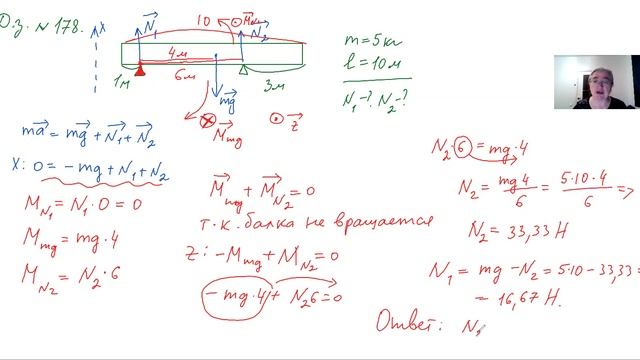 Д.з. № 178.
X
N₁
10
M
N₂
4 м
1 м
6 м
3 м
mg
M mg
z
m = 5 кг
l = 10 м
N₁ - ? N₂ - ?
ma = mg + N₁ + N₂
X: 0 = -mg + N₁ + N₂
M N₁ = N₁ · 0 = 0
M mg = mg · 4
M N₂ = N₂ · 6
M mg + M N₂ = 0
т.к. балка не вращается
z: -M mg + M N₂ = 0
-mg·4 + N₂6 = 0
N₂ · 6 = mg · 4
N₂ = mg 4 / 6 = 5·10·4 / 6 =>
N₂ = 33,33 Н
N₁ = mg - N₂ = 5·10 - 33,33 =
= 16,67 Н.
Ответ: N₁